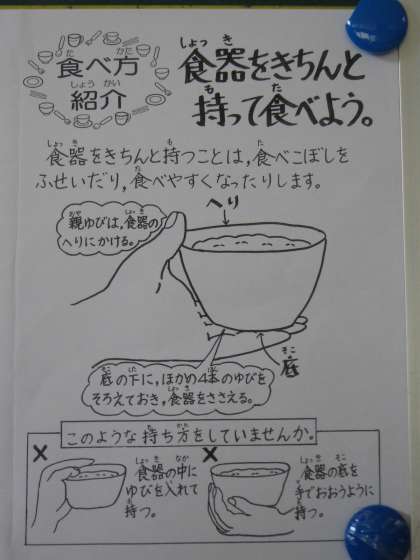 食べ方
紹介
食器をきちんと
持って食べよう。
食器をきちんと持つことは,食べこぼしを
ふせいだり,食べやすくなったりします。
へり
親ゆびは,食器の
へりにかける。
底
底の下に,ほかの4本のゆびを
そろえておき,食器をささえる。
このような持ち方をしていませんか。
食器の中に
ゆびを入れて
持つ。
食器の底を
手でおおうように
持つ。